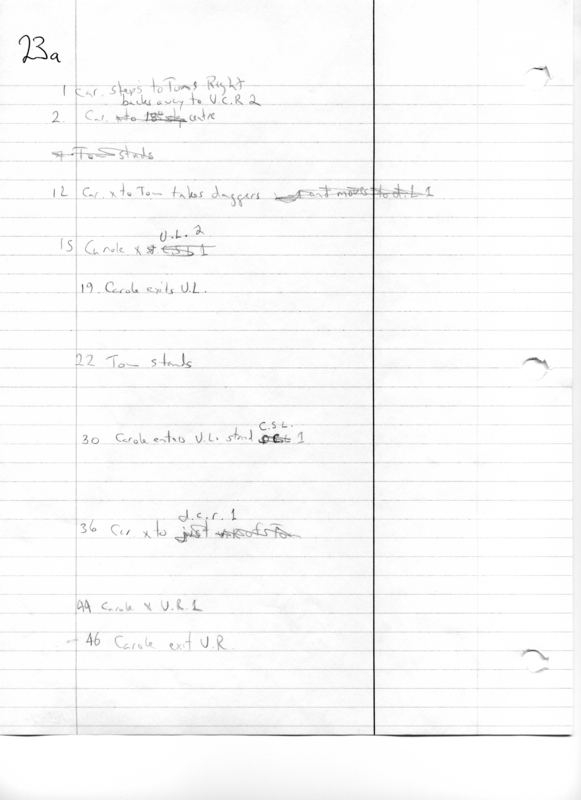 23a
1 Car. steps to Toms Right
backs away to U.C.R 2
2. Car. x to centre
Tom stands
12 Car. x to Tom takes daggers and moves to d.L 1
U.L. 2
15 Carole x C.S.L 1
19. Carole exits U.L.
22 Tom stands
C.S.L.
30 Carole enters U.L. stand 1
d.c.r. 1
36 Car x to just of Tom
44 Carole x U.R.1
46 Carole exit U.R.